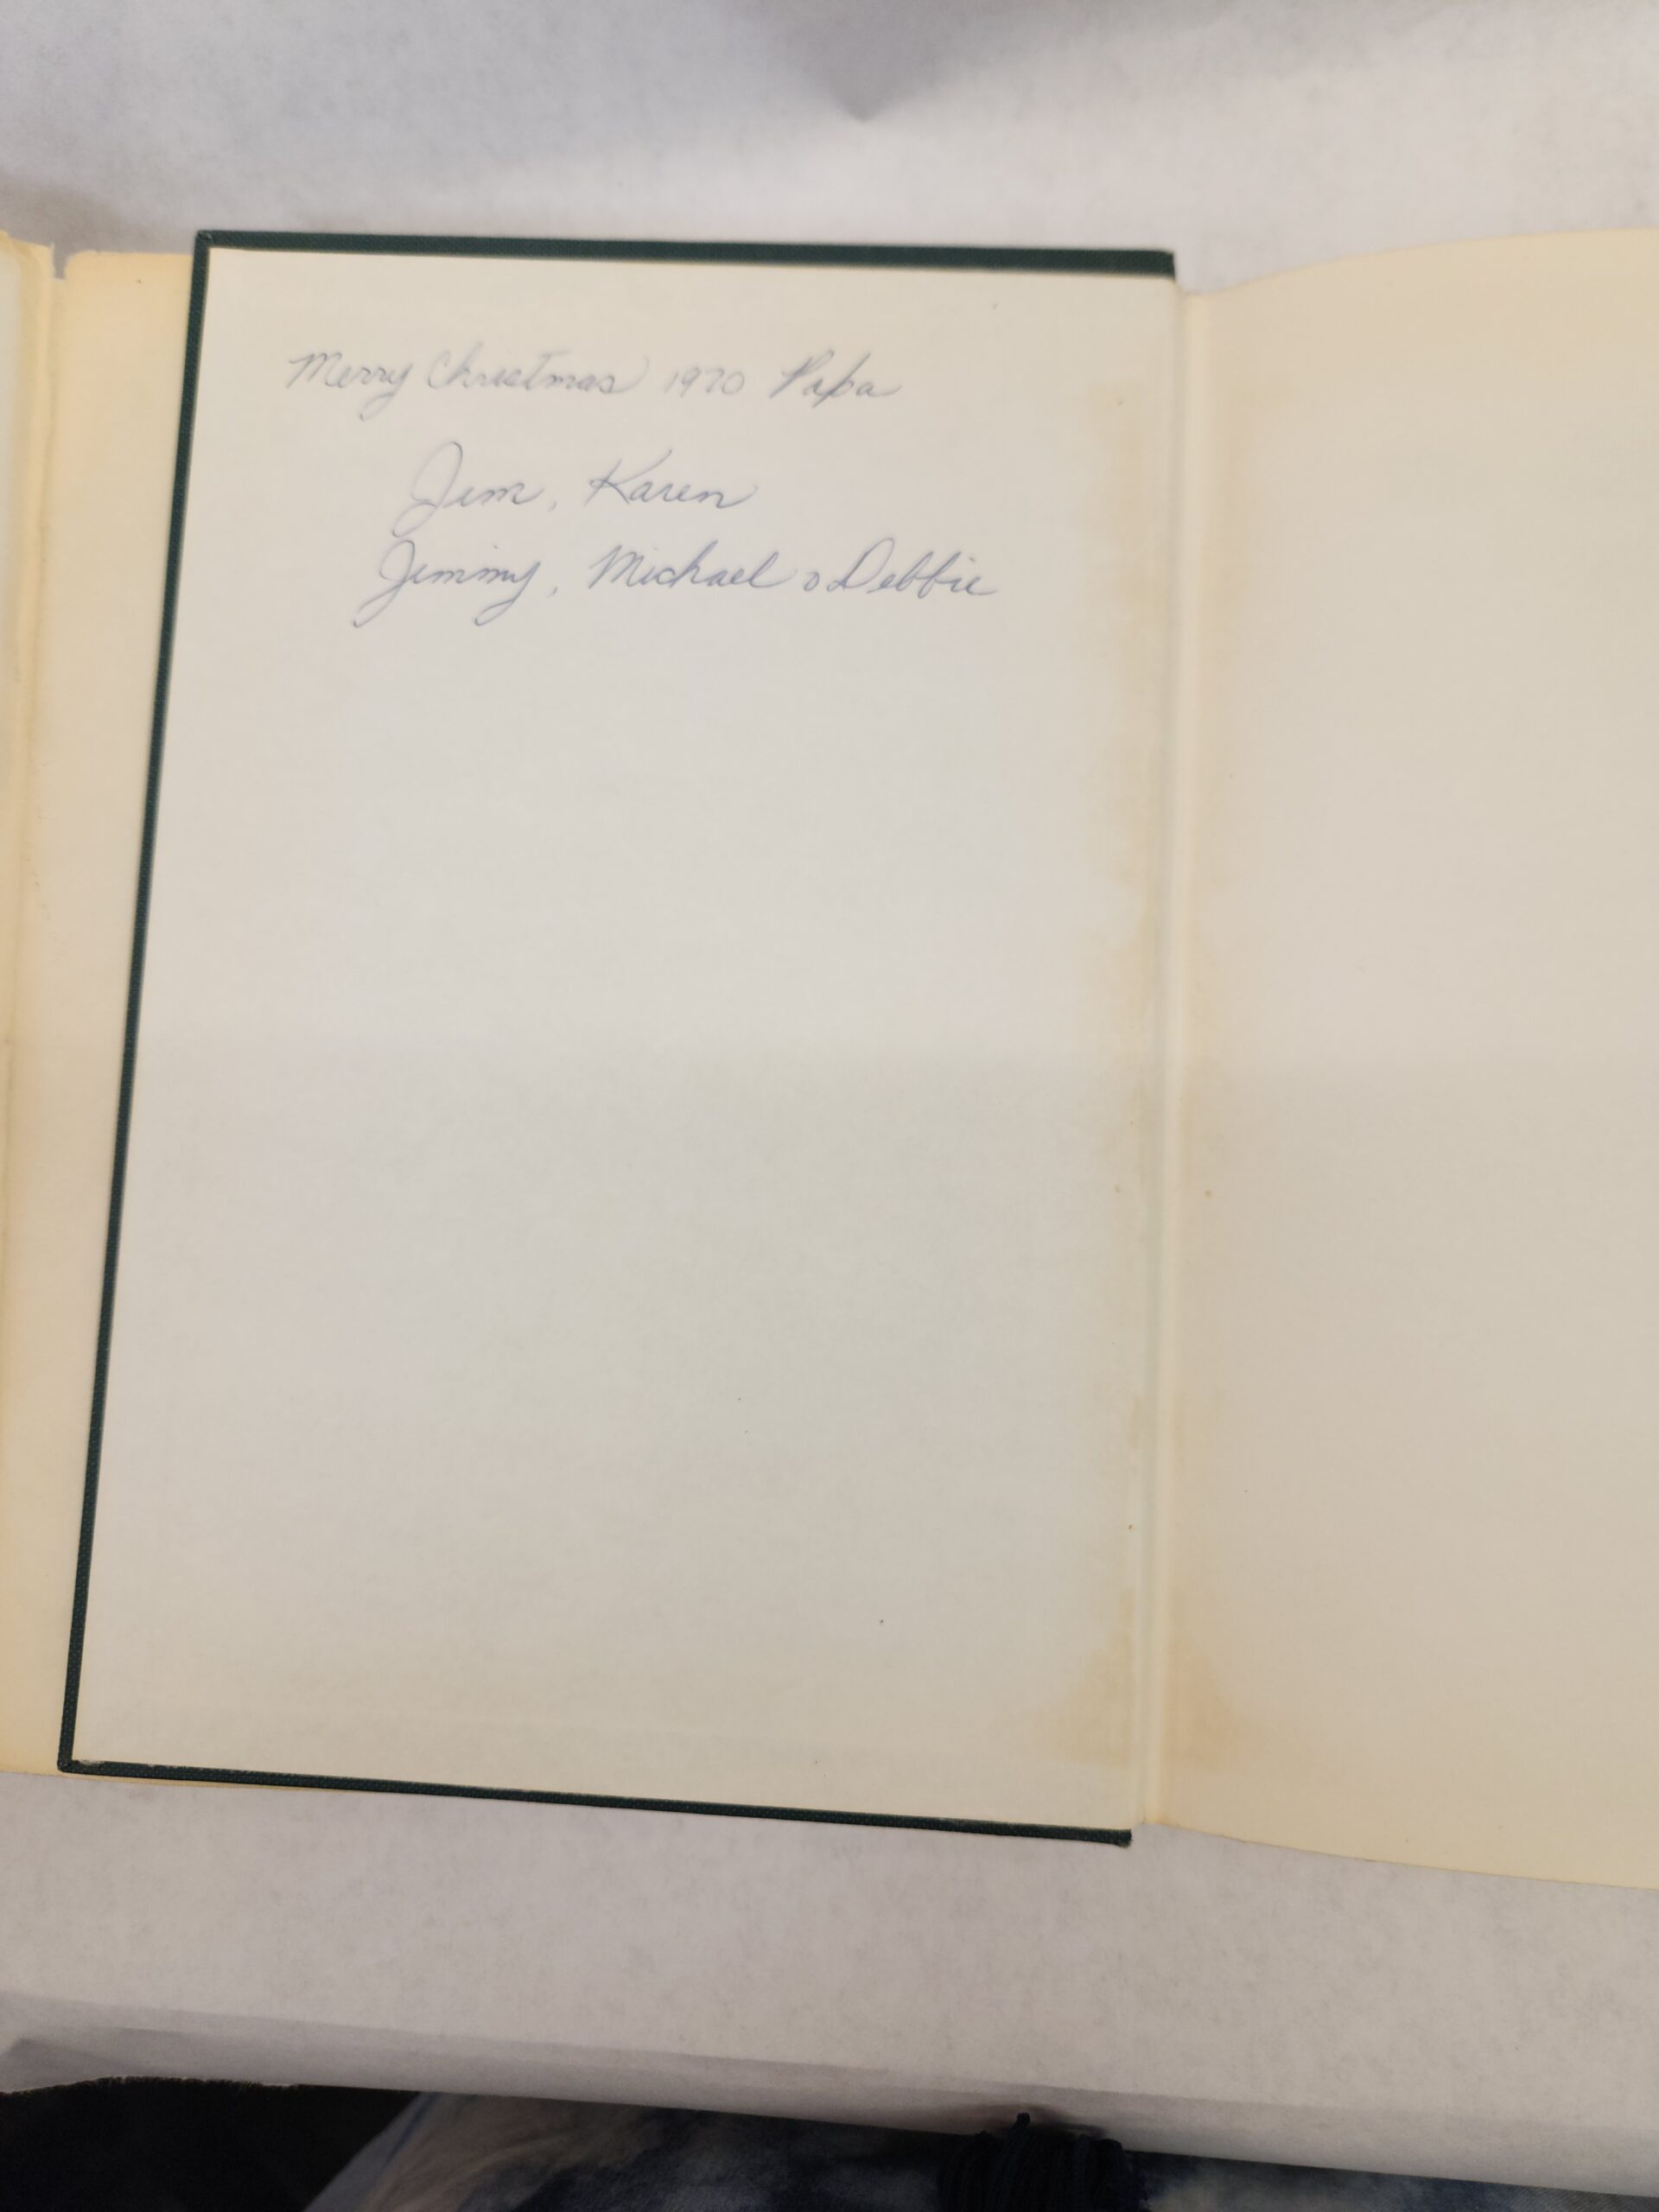 Merry Christmas 1970 Papa
Jim, Karen
Jimmy, Michael & Debbie